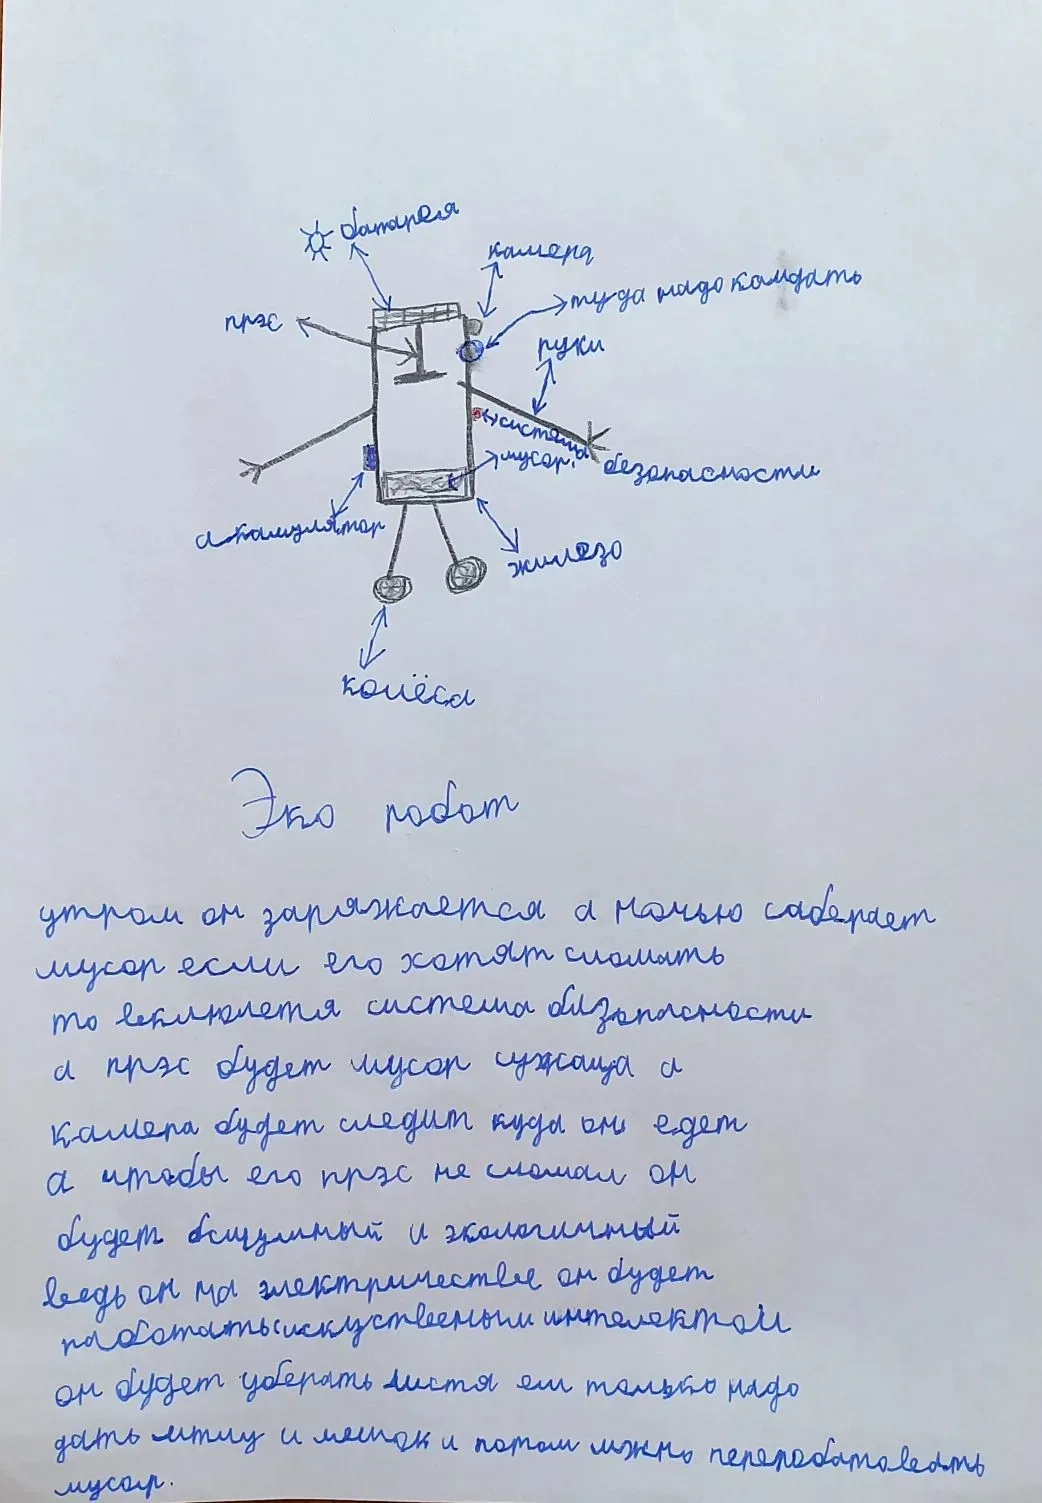 батарея
камера
туда надо комдать
прэс
руки
система
мусор.
безопасности
акамулятор
жилезо
колёса
Эко робот
утром он заряжается а ночью саберает
мусор если его хотят сломать
то включется система безопасности
а прэс будет мусор сужаца а
камера будет следит куда он едет
а чтобы его прэс не сломал он
будет бешумный и экологичный
ведь он на электричестве он будет
работать с искуственым интелектом
он будет уберать листя ем только надо
дать мтлу и мешок и потом мжно переработовать
мусор.